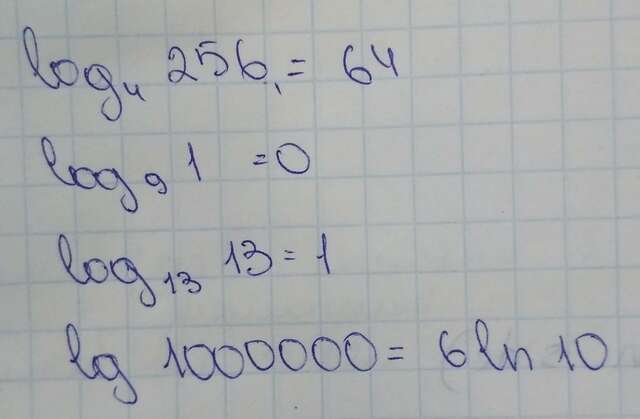 log₄ 256 = 64
log₉ 1 = 0
log₁₃ 13 = 1
lg 1000000 = 6 ln 10